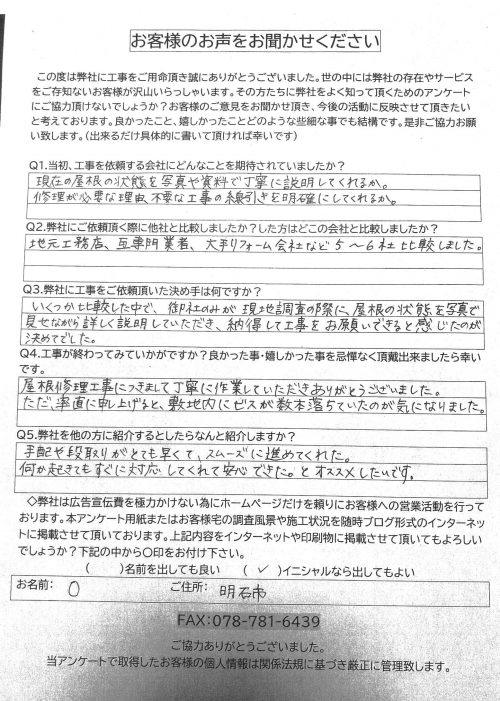 お客様のお声をお聞かせください
この度は弊社に工事をご用命頂き誠にありがとうございました。世の中には弊社の存在やサービス
をご存知ないお客様が沢山いらっしゃいます。その方たちに弊社をよく知って頂くためのアンケート
にご協力頂けないでしょうか？お客様のご意見をお聞かせ頂き、今後の活動に反映させて頂きたい
と考えております。良かったこと、嬉しかったことどのような些細な事でも結構です。是非ご協力お願
い致します。（出来るだけ具体的に書いて頂ければ幸いです）
Q1.当初、工事を依頼する会社にどんなことを期待されていましたか？
現在の屋根の状態を写真や資料で丁寧に説明してくれるか。
修理が必要な理由、不要な工事の線引きを明確にしてくれるか。
Q2.弊社にご依頼頂く際に他社と比較しましたか？した方はどこの会社と比較しましたか？
地元工務店、瓦専門業者、大手リフォーム会社など5〜6社比較しました。
Q3.弊社に工事をご依頼頂いた決め手は何ですか？
いくつか比較した中で、御社のみが現地調査の際に、屋根の状態を写真で
見せながら詳しく説明していただき、納得して工事をお願いできると感じたのが
決めてでした。
Q4.工事が終わってみていかがですか？良かった事・嬉しかった事を忌憚なく頂戴出来ましたら幸い
です。
屋根修理工事につきまして丁寧に作業していただきありがとうございました。
ただ、率直に申し上げると、敷地内にビスが数本落ちていたのが気になりました。
Q5.弊社を他の方に紹介するとしたらなんと紹介しますか？
手配や段取りがとても早くて、スムーズに進めてくれた。
何か起きてもすぐに対応してくれて安心できた。とオススメしたいです。
◇弊社は広告宣伝費を極力かけない為にホームページだけを頼りにお客様への営業活動を行って
おります。本アンケート用紙またはお客様宅の調査風景や施工状況を随時ブログ形式のインターネッ
トに掲載させて頂いております。上記内容をインターネットや印刷物に掲載させて頂いてもよろしい
でしょうか？下記の中から〇印をお付け下さい。
（　　）名前を出しても良い　（ ✓ ）イニシャルなら出してもよい
お名前： O　ご住所： 明石市
FAX:078-781-6439
ご協力ありがとうございました。
当アンケートで取得したお客様の個人情報は関係法規に基づき厳正に管理致します。